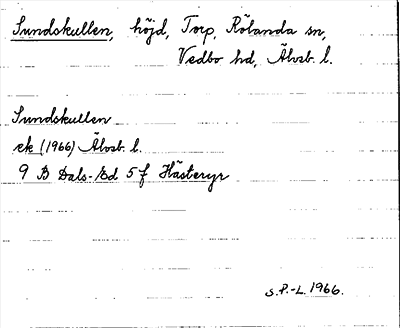 Sundskullen, höjd, Torp, Rölanda sn,
Vedbo hd, Älvsb. l.
Sundskullen
ek (1966) Älvsb. l.
9 B Dals-Ed 5 f Hästeryr
S.P.-L. 1966.